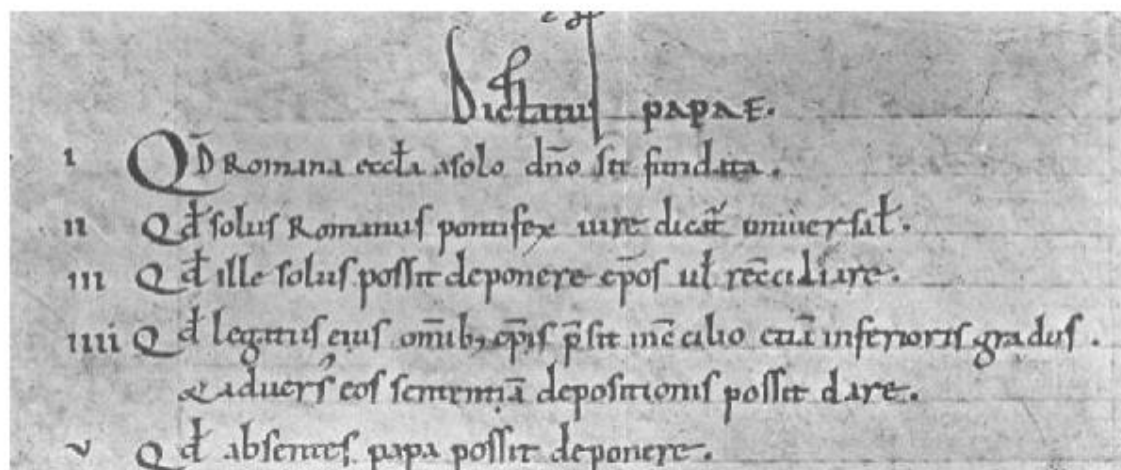 Dictatus papae.
i Qđ Romana eccła a solo dño sit fundata.
ii Qđ solus Romanus pontifex iure dicat̃ universał.
iii Qđ ille solus possit deponere ep̃os uł rec̃ciliare.
iiii Qđ legatus eius om̃ib; ep̃is p̃sit in c̃cilio etiã inferioris gradus.
& adversͥ eos sententiã depositionis possit dare.
v Qđ absentes papa possit deponere.